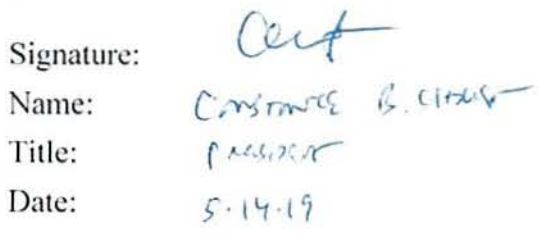 Signature:
Name: Constance B.
Title: President
Date: 5.14.19